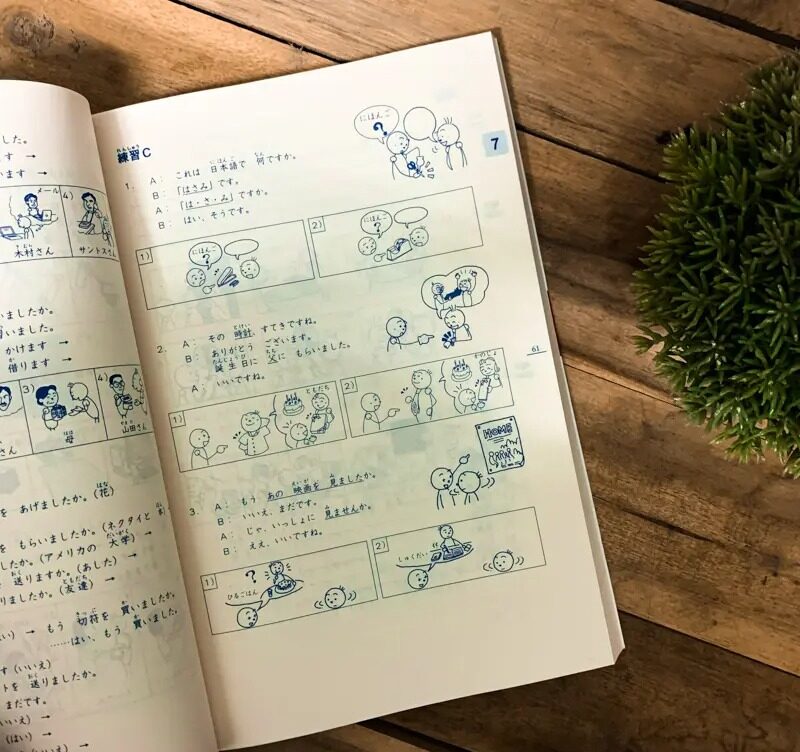 ました。
ます →
います →
メール
4)
木村さん
サントスさん
いましたか。
いました。
かけます →
借ります →
3)
4)
さん
母
山田さん
を あげましたか。(花)
を もらいましたか。(ネクタイと
したか。(アメリカの 大学) →
送りますか。(あした) →
りましたか。(友達) →
い) → もう 切符を 買いましたか。
……はい、もう 買いました。
す (いいえ)
トを 送りましたか。
まだです。
いいえ) →
(はい) →
(いいえ) →
練習C
1. A: これは 日本語で 何ですか。
B: 「はさみ」です。
A: 「は・さ・み」ですか。
B: はい、そうです。
にほんご
?
7
1)
にほんご
?
2)
にほんご
?
2. A: その 時計、すてきですね。
B: ありがとう ございます。
誕生日に 父に もらいました。
A: いいですね。
61
1)
ともだち
2)
かのじょ
3. A: もう あの 映画を 見ましたか。
B: いいえ、まだです。
A: じゃ、いっしょに 見ませんか。
B: ええ、いいですね。
HOME
1)
?
ひるごはん
2)
しゅくだい